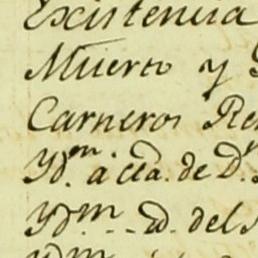 Existencia
Muerto y
Carneros Re
Ydm. a cta. de D.
Ydm. - - id. del